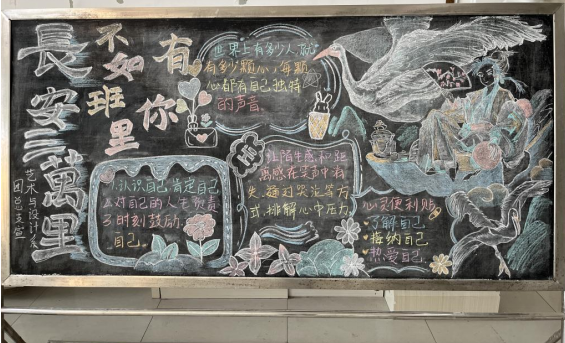 長安三萬里
不如
班里
有你
艺术与设计系
团总支宣
世界上有多少人就
有多少颗心，每颗
心都有自己独特
的声音
1.认识自己 肯定自己
2.对自己的人生负责
3.时刻鼓励
自己。
让陌生感和距
离感在笑声中消
失，通过哭泣等方
式，排解心中压力
心灵便利贴
了解自己
接纳自己
热爱自己